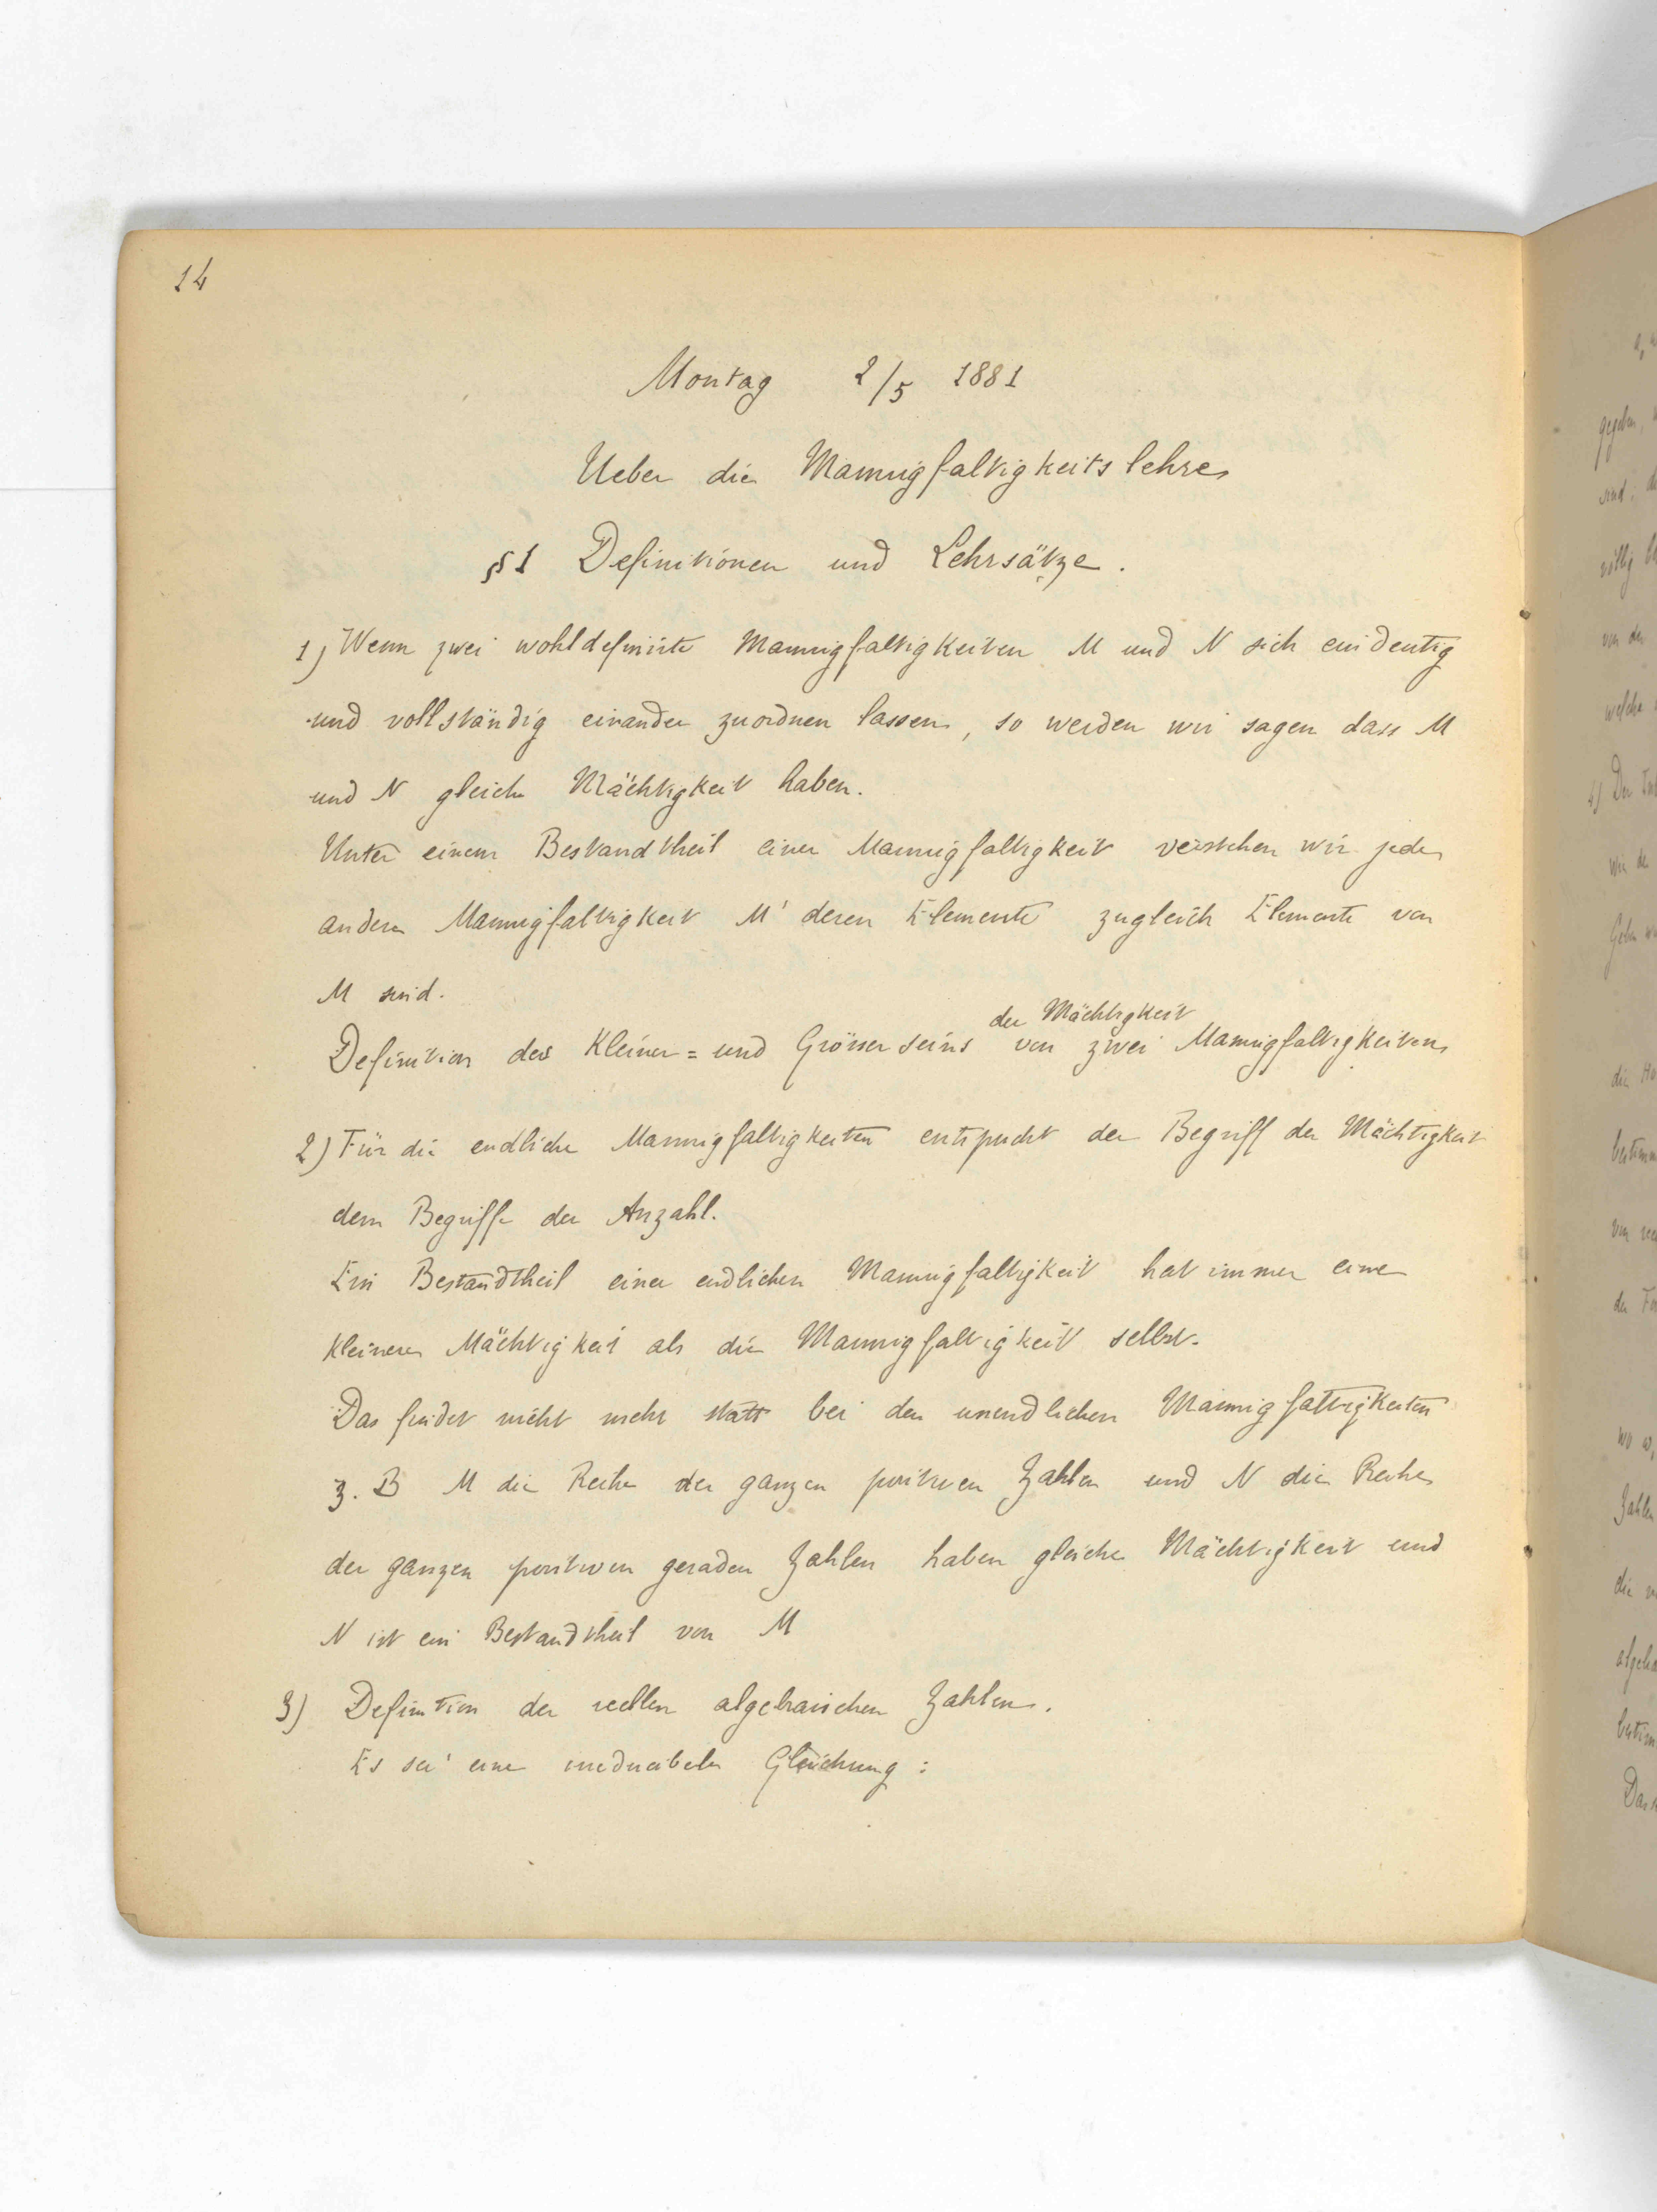 14
Montag 2/5 1881
Ueber die Mannigfaltigkeitslehre
§1 Definitionen und Lehrsätze.
1) Wenn zwei wohldefinirte Mannigfaltigkeiten M und N sich eindeutig
und vollständig einander zuordnen lassen, so werden wir sagen dass M
und N gleiche Mächtigkeit haben.
Unter einem Bestandtheil einer Mannigfaltigkeit verstehen wir jede
andere Mannigfaltigkeit M' deren Elemente zugleich Elemente von
M sind.
der Mächtigkeit
Definition des Kleiner= und Grösser seins von zwei Mannigfaltigkeiten
2) Für die endliche Mannigfaltigkeiten entspricht der Begriff der Mächtigkeit
dem Begriffe der Anzahl.
Ein Bestandtheil einer endlichen Mannigfaltigkeit hat immer eine
kleinere Mächtigkeit als die Mannigfaltigkeit selbst.
Das findet nicht mehr statt bei den unendlichen Mannigfaltigkeiten
z. B M die Reihe der ganzen positiven Zahlen und N die Reihe
der ganzen positiven geraden Zahlen haben gleiche Mächtigkeit und
N ist ein Bestandtheil von M
3) Definition der reellen algebraischen Zahlen.
Es sei eine irreducibele Gleichung :
gegeben,
sind;
völlig
von der
welche
4) Der
wir die